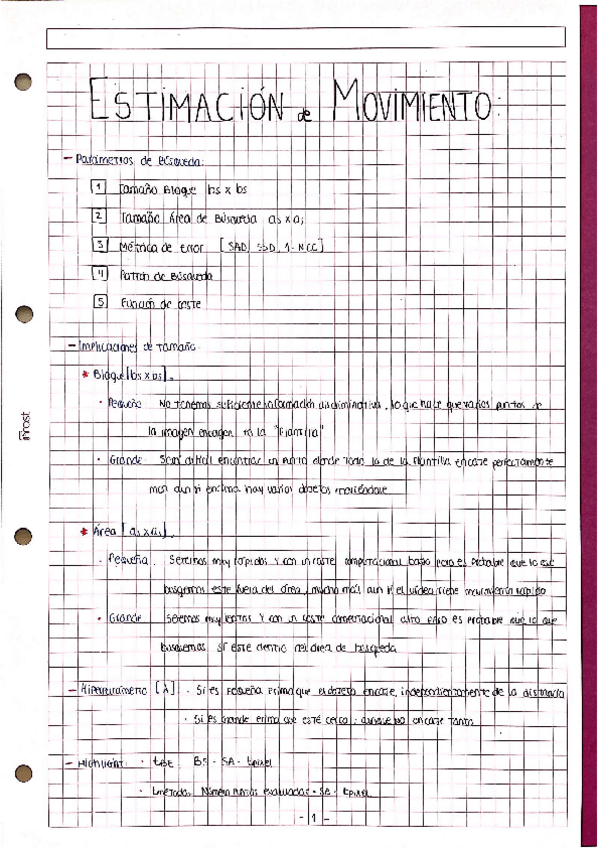 ESTIMACIÓN de MOVIMIENTO:
- Parámetros de Búsqueda:
1 Tamaño Bloque bs x bs
2 Tamaño Área de Búsqueda as x as
3 Métrica de error [SAD, SSD, 1-NCC]
4 Patrón de Búsqueda
5 Función de coste
- Implicaciones de Tamaño
* Bloque [bs x bs].
· Pequeño No tenemos suficiente información discriminativa, lo que hace que varios puntos de
la imagen encajen en la "Plantilla"
· Grande Será difícil encontrar un punto donde toda la de la Plantilla encaste perfectamente
más aun si encima hay varios objetos moviéndose
* Área [as x as].
· Pequeña. Seremos muy rápidos y con un coste computacional bajo pero es probable que lo que
busquemos esté fuera del área, mucho más aun si el vídeo tiene movimiento rápido
· Grande Seremos muy lentos y con un coste computacional alto pero es probable que lo que
busquemos si esté dentro del área de búsqueda
- Hiperparámetro [λ] · Si es pequeña prima que el objeto encaste, independientemente de la distancia
· Si es Grande prima que esté cerca, aunque no encaste tanto
- Highlight: · tBE: BS · SA · tpixel
· tmétodo: Número puntos evaluados · SA · tpixel
- 1 -